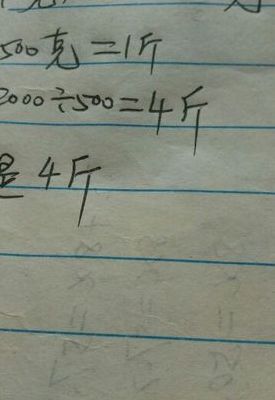 500克=1斤
2000÷500=4斤
是4斤